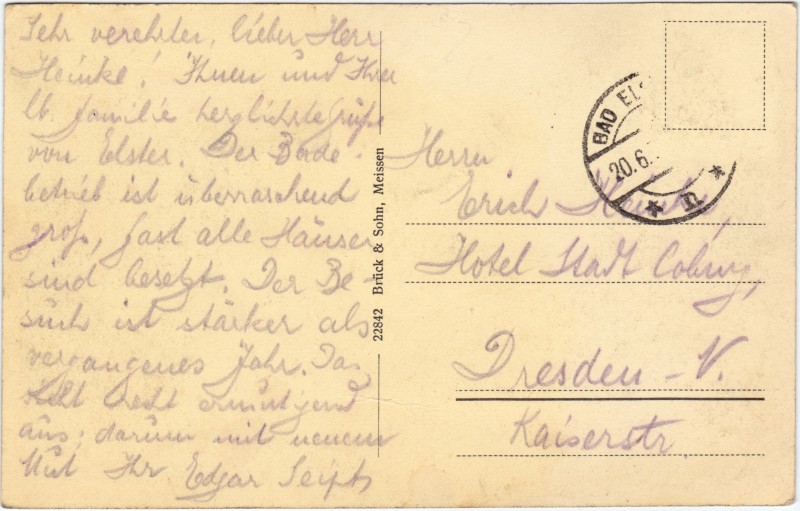 Sehr verehrter, lieber Herr
Heinke! Ihnen und Ihrer
lb. Familie herzlichste Grüße
von Elster. Der Bade-
betrieb ist überraschend
groß, fast alle Häuser
sind besetzt. Der Be-
such ist stärker als
vergangenes Jahr. Das
sieht recht ermutigend
aus; darum mit neuem
Mut Ihr Edgar
22842 Brück & Sohn, Meissen
BAD
20.6.
n
Herrn
Erich Heinke,
Hotel Stadt Coburg,
Dresden-N.
Kaiserstr.